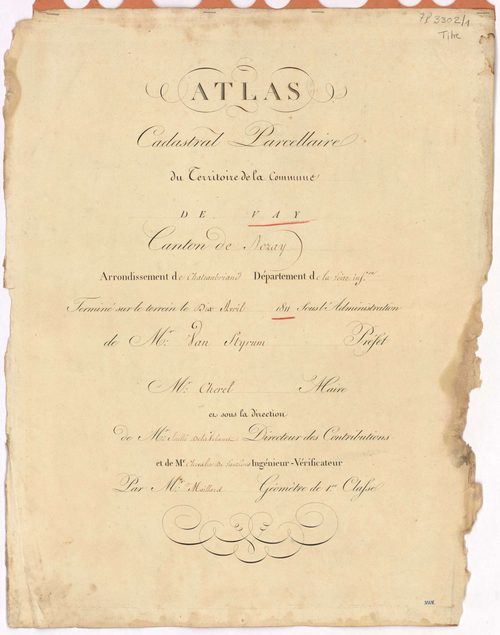 7P 3302/1
Titre
ATLAS
Cadastral Parcellaire
du Territoire de la Commune
DE VAY
Canton de Nozay
Arrondissement de Chateaubriand Département de la Loire infre
Terminé sur le terrein le Dix Avril 1811 Sous l'Administration
de Mr. Van Styrum Préfet
Mr. Cherel Maire
et sous la direction
de Mr. Directeur des Contributions
et de Mr. Chevalier Ingénieur-Vérificateur
Par Mr. Maillard Géomètre de 1re Classe